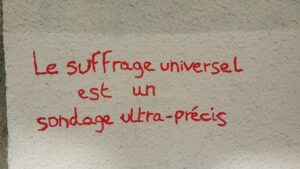 Le suffrage universel
est un
sondage ultra-précis